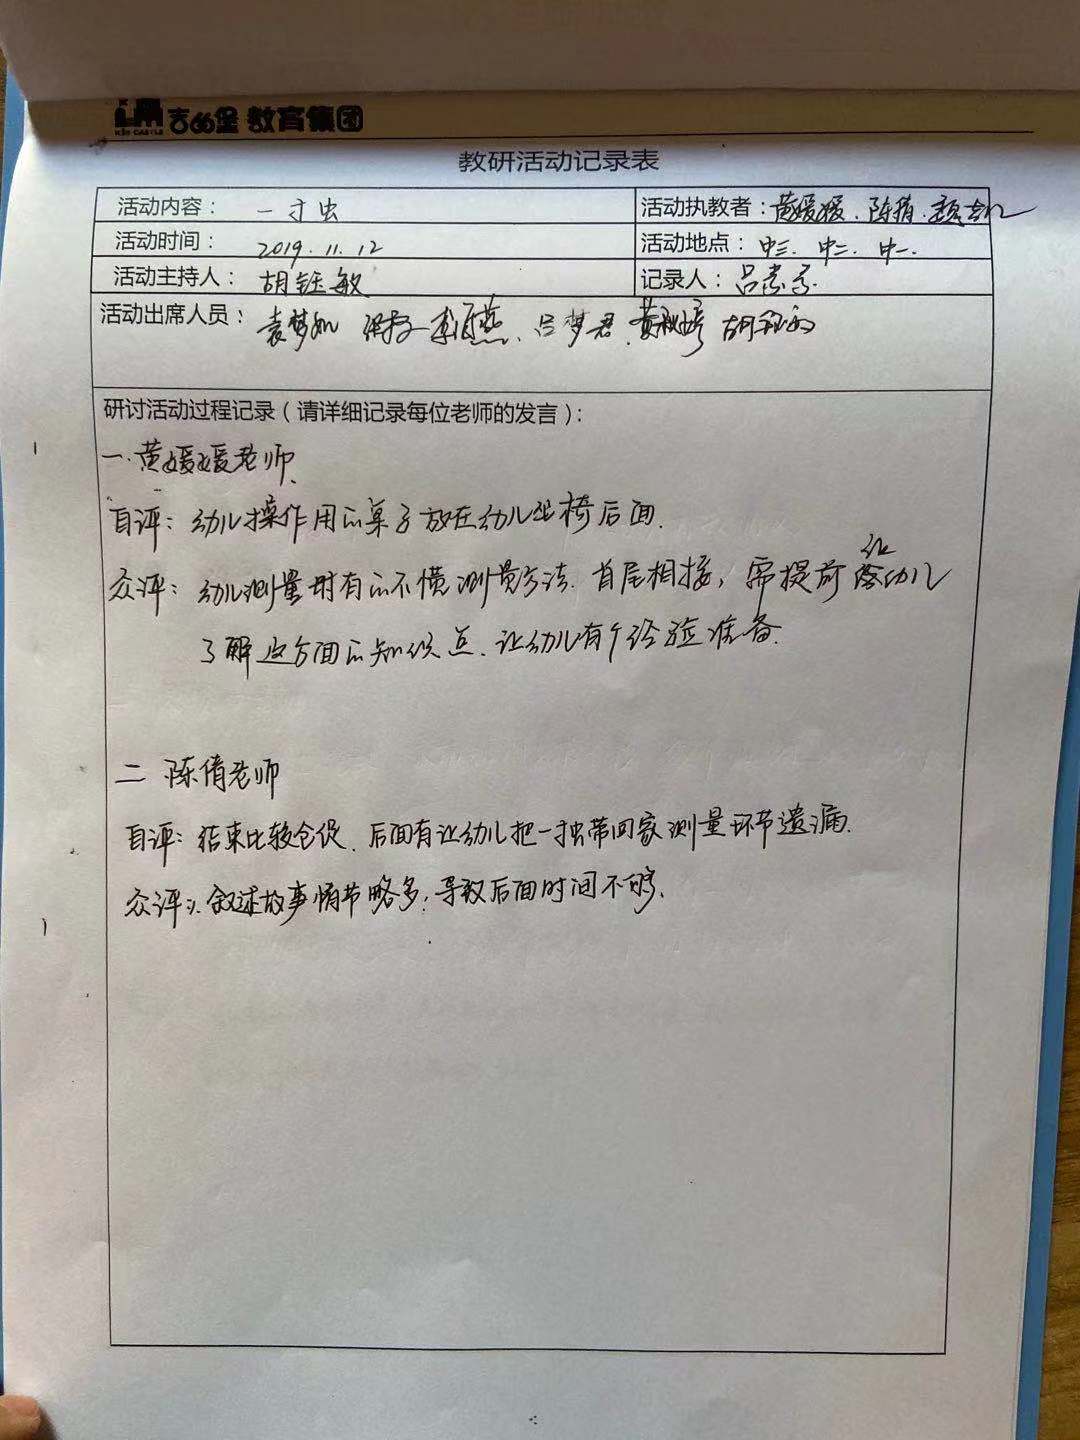 KID CASTLE 吉的堡 教育集团
教研活动记录表
活动内容： 一寸虫 活动执教者：黄媛媛、陈倩、
活动时间： 2019.11.12 活动地点：中三、中二、中一、
活动主持人：胡钰敏 记录人：吕
活动出席人员：袁梦如 李 燕、吕梦君、黄 婷 胡
研讨活动过程记录（请详细记录每位老师的发言）：
一、黄媛媛老师、
自评：幼儿操作用的桌子放在幼儿坐椅后面、
众评：幼儿测量时有的不懂测量方法、首尾相接，需提前让幼儿
了解这方面的知识点、让幼儿有个经验准备、
二 陈倩老师
自评：结束比较仓促、后面有让幼儿把一寸虫带回家测量环节遗漏、
众评：叙述故事情节略多，导致后面时间不够、